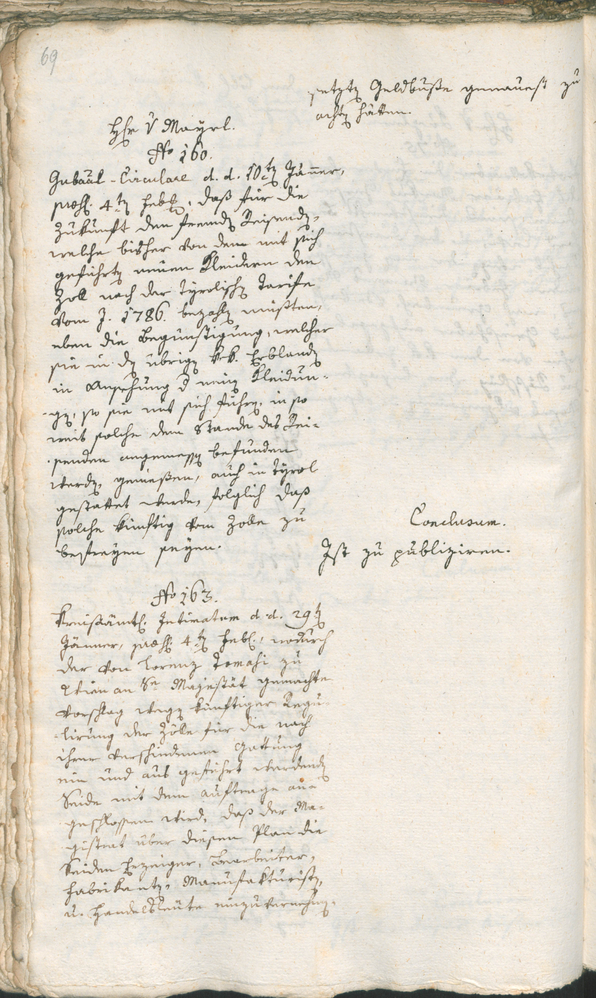 69
setzte Geldbuße genauest zu
acht hätten.
Hr v Mayrl.
No 160.
Gubäal-Circulare d. d. 10ten Jänner,
præs. 4ten Febr., daß für die
Zukunft den fremden Reisenden,
welche bisher von dem mit sich
geführten neuen Kleidern den
Zoll nach der Tyrolischen Tariffe
vom J. 1786 bezahlen müßten,
eben die Begünstigung, welcher
sie in den übrigen k. k. Erblanden
in Ansehung d neuen Kleidun-
gen, so sie mit sich führen, in so
weit solche dem Stande des Rei-
senden angemessen befunden
werden, genießen, auch in Tyrol
gestattet werde, folglich daß
solche künftig vom Zolle zu
befreyen seyen.
Conclusum.
Ist zu publiziren.
No 163.
Kreisämtl. Intimatum d. d. 29ten
Jänner, præs. 4ten Febr., wodurch
der von Lorenz Tomasi zu
an Se Majestät gemachte
Vorschlag wegen künftiger Regu-
lirung der Zölle für die nach
ihrer verschiedenen Gattung
ein und aus geführt werdende
Seide mit dem Auftrage an-
geschlossen wird, daß der Ma-
gistrat über diesen Plan die
Seiden Erzeiger, Bearbeiter,
Fabrikanten, Manufakturisten,
u. Handelsleute einzuvernehmen,